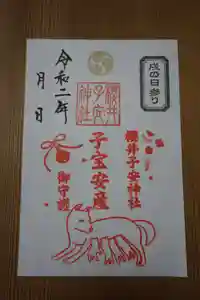 戌の日参り
櫻井
子安
神社
令和二年
月 日
櫻井子安神社
子宝安産
御守護